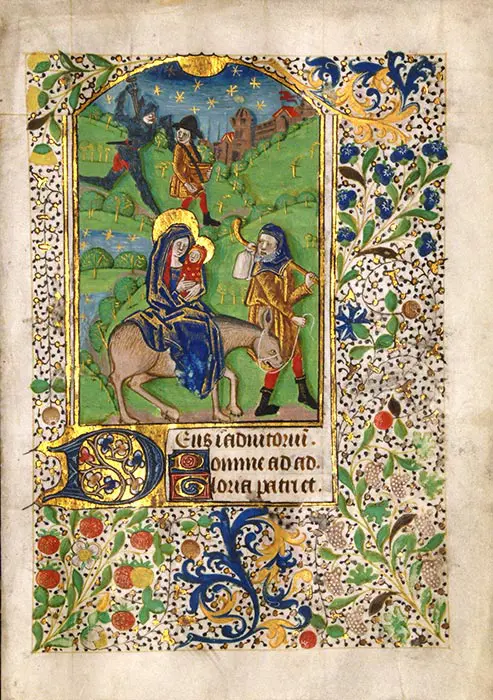 Deus ī adiutoriū.
Domine ad ad.
Gloria patri et.